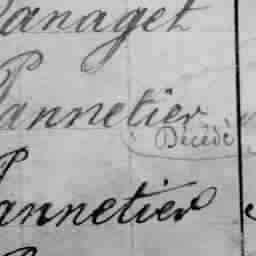 Panaget
Pannetier
Décédé
Pannetier